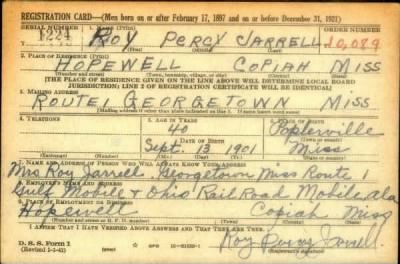 REGISTRATION CARD—(Men born on or after February 17, 1897 and on or before December 31, 1921)
SERIAL NUMBER 1. NAME (Print) ORDER NUMBER
1224 ROY PERCY JARRELL 10,089
(First) (Middle) (Last)
2. PLACE OF RESIDENCE (Print)
HOPEWELL COPIAH MISS
(Number and street) (Town, township, village, or city) (County) (State)
[THE PLACE OF RESIDENCE GIVEN ON THE LINE ABOVE WILL DETERMINE LOCAL BOARD
JURISDICTION; LINE 2 OF REGISTRATION CERTIFICATE WILL BE IDENTICAL]
3. MAILING ADDRESS
ROUTE 1, GEORGETOWN MISS
[Mailing address if other than place indicated on line 2. If same insert word same]
4. TELEPHONE 5. AGE IN YEARS 6. PLACE OF BIRTH
40 Poplerville
DATE OF BIRTH (Town or county)
Sept. 13 1901 Miss
(Exchange) (Number) (Mo.) (Day) (Yr.) (State or country)
7. NAME AND ADDRESS OF PERSON WHO WILL ALWAYS KNOW YOUR ADDRESS
Mrs Roy Jarrell. Georgetown Miss Route
8. EMPLOYER'S NAME AND ADDRESS
Gulf Mobile & Ohio RailRoad Mobile ala
9. PLACE OF EMPLOYMENT OR BUSINESS
Hopewell Copiah Miss
(Number and street or R. F. D. number) (Town) (County) (State)
I AFFIRM THAT I HAVE VERIFIED ABOVE ANSWERS AND THAT THEY ARE TRUE.
D. S. S. Form 1
(Revised 1-1-42) (over) Roy Percy Jarrell.